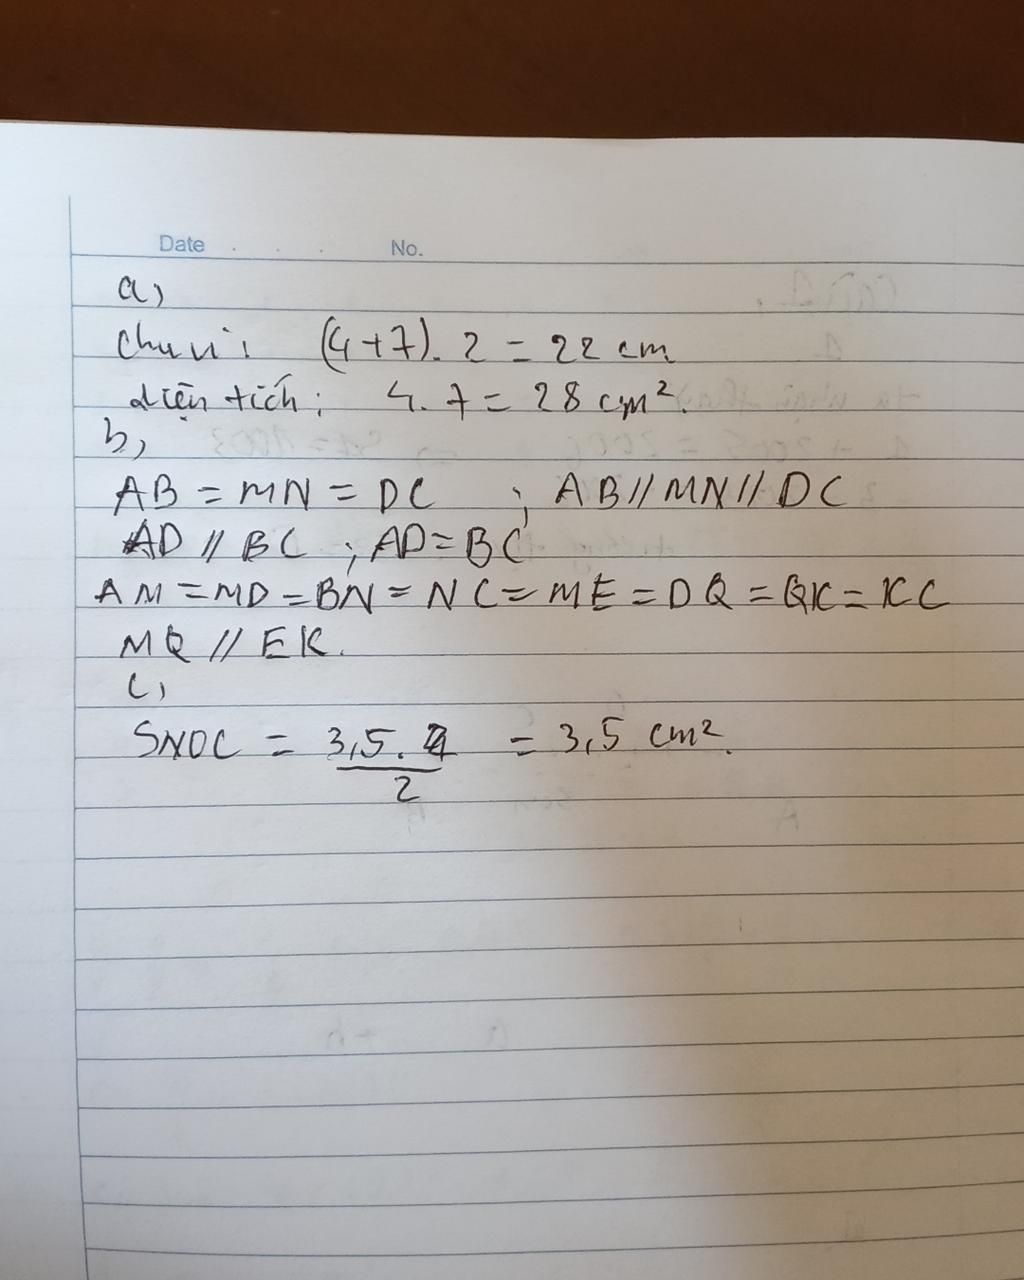 Date . . . No.
a,
Chu vi: (4+7). 2 = 22 cm
diện tích: 4. 7 = 28 cm².
b,
AB = MN = DC ; AB // MN // DC
AD // BC ; AD = BC
AM = MD = BN = NC = ME = DQ = QK = KC
MQ // EK.
c,
SNOC = 3,5. / 2 = 3,5 cm².